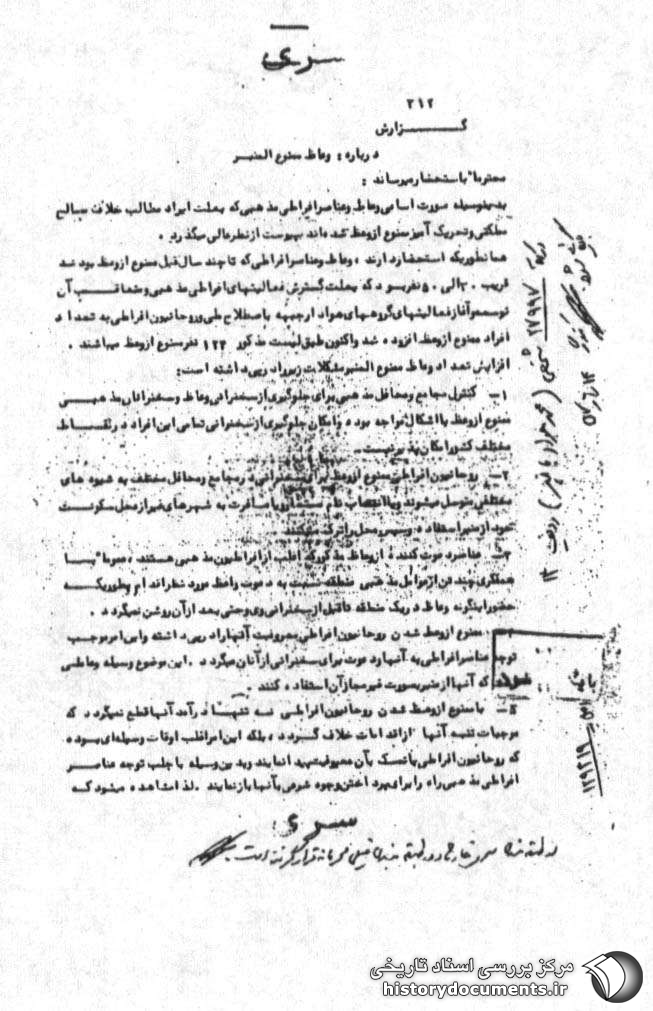 سری
۲۱۲
گـــزارش
درباره : وعاظ ممنوع المنبر
محترما" باستحضار میرساند :
بدینوسیله صورت اسامی وعاظ وعناصر افراطی مذهبی که بعلت ایراد مطالب خلاف مصالح
مملکتی وتحریک آمیز ممنوع ازوعظ شده اند بپیوست از نظرعالی میگذرد .
همانطوریکه استحضار دارند ، وعاظ وعناصر افراطی که تا چند سال قبل ممنوع ازوعظ بودند
قریب ۳۰ الی ۵۰ نفر بود که بعلت گسترش فعالیتهای افراطی مذهبی ومتعاقب آن
توسعه وآغاز فعالیتهای گروههای هوادار جبهه باصطلاح ملی وروحانیون افراطی به تعداد
افراد ممنوع ازوعظ افزوده شد واکنون طبق لیست مذکور ۱۲۴ نفر ممنوع ازوعظ میباشند .
افزایش تعداد وعاظ ممنوع المنبر مشکلات زیررا درپی داشته است :
۱- کنترل مجامع ومحافل مذهبی برای جلوگیری از سخنرانی وعاظ وسخنرانان مذهبی
ممنوع ازوعظ با اشکال مواجه بوده وامکان جلوگیری از سخنرانی تمامی این افراد در نقاط
مختلف کشور امکان پذیر نیست .
۲- روحانیون افراطی ممنوع ازوعظ برای سخنرانی در مجامع ومحافل مختلف به شیوه های
مختلفی متوسل میشوند ویا انتخاب نام مستعار ویا مسافرت به شهرهای غیر از محل سکونت
خود از منبر استفاده وسپس محل را ترک میکنند .
۳- عناصر دعوت کننده ازوعاظ مذکور که اغلب از افراطیون مذهبی هستند ، عموما" با
همفکری چند تن از عوامل مذهبی منطقه نسبت به دعوت واعظ مورد نظر اقدام وبطوریکه
حضور اینگونه وعاظ در یک منطقه تا قبل از سخنرانی وی وحتی بعد از آن روشن نمیگردد .
۴- ممنوع ازوعظ شدن روحانیون افراطی معروفیت آنها را درپی داشته واین امر موجب
توجه عناصر افراطی به آنها ودعوت برای سخنرانی از آنان میگردد . این موضوع وسیله وعاملی
که آنها از منبر بصورت غیر مجاز آن استفاده کنند .
۵- با ممنوع ازوعظ شدن روحانیون افراطی نه تنها درآمد آنها قطع نمیگردد که
موجبات تنبه آنها از اقدامات خلاف گردد ، بلکه این امر اغلب اوقات وسیله ای بوده
که روحانیون افراطی با تمسک بآن معروفیت پیدا نمایند وبدین وسیله با جلب توجه عناصر
افراطی مذهبی راه را برای پرداختن وجوه شرعی بآنها باز نمایند . لذا مشاهده میشود که
سری
۲۷۹۹۷
۱۲۹۲۱۹
مرکز بررسی اسناد تاریخی
historydocuments.ir